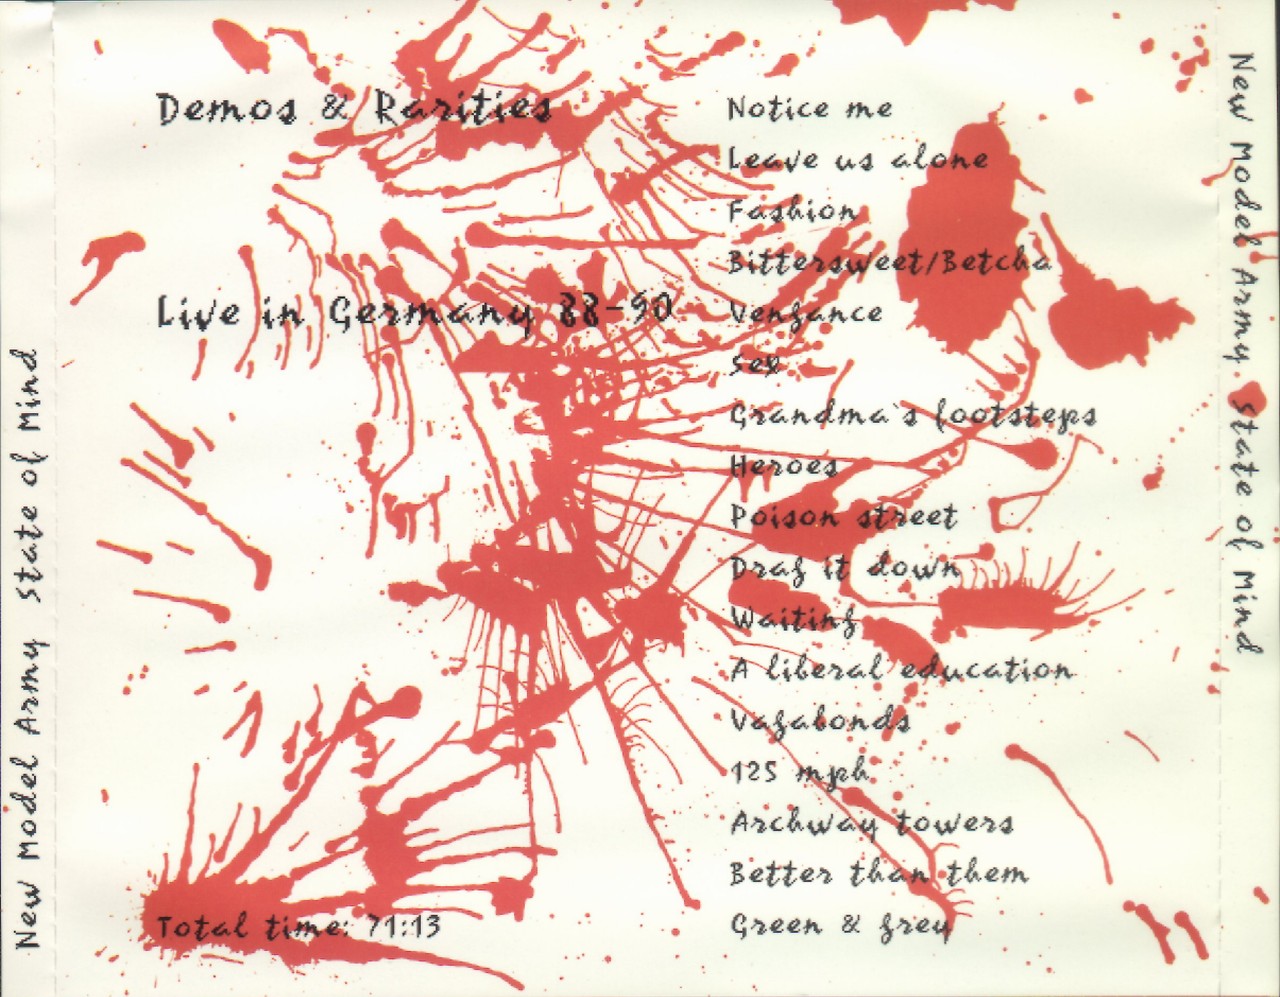 New Model Army State of Mind
Demos & Rarities
Live in Germany 88-90
Total time: 71:13
Notice me
Leave us alone
Fashion
Bittersweet/Betcha
Vengance
Sex
Grandma's footsteps
Heroes
Poison street
Drag it down
Waiting
A liberal education
Vagabonds
125 mph
Archway towers
Better than them
Green & grey
New Model Army. State of Mind